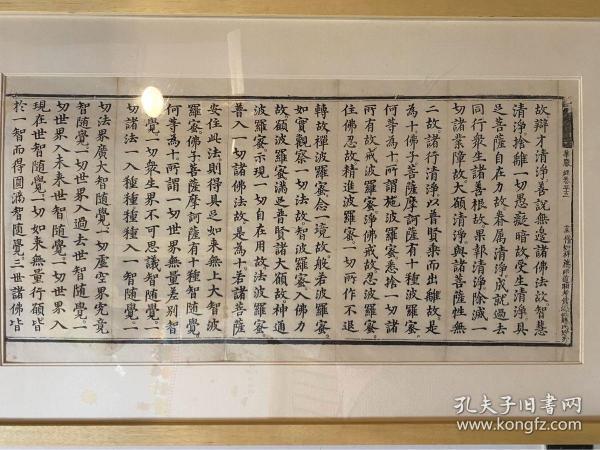 故辯才清淨善說無邊諸佛法故智慧
清淨捨離一切愚癡暗故受生清淨具
足菩薩自在力故眷屬清淨成就過去
同行衆生諸善根故果報清淨除滅一
切諸業障故大願清淨與諸菩薩性無
二故諸行清淨以普賢乘而出離故是
為十佛子菩薩摩訶薩有十種波羅蜜
何等為十所謂施波羅蜜悉捨一切諸
所有故戒波羅蜜淨佛戒故忍波羅蜜
住佛忍故精進波羅蜜一切所作不退
轉故禪波羅蜜念一境故般若波羅蜜
如實觀察一切法故智波羅蜜入佛力
故願波羅蜜滿足普賢諸大願故神通
波羅蜜示現一切自在用故法波羅蜜
普入一切諸佛法故是為十若諸菩薩
安住此法則得具足如來無上大智波
羅蜜佛子菩薩摩訶薩有十種智隨覺
何等為十所謂一切世界無量差別智
隨覺一切衆生界不可思議智隨覺一
切諸法一入種種種種入一智隨覺一
切法界廣大智隨覺一切虛空界究竟
智隨覺一切世界入過去世智隨覺一
切世界入未來世智隨覺一切世界入
現在世智隨覺一切如來無量行願皆
於一智而得圓滿智隨覺三世諸佛皆
孔夫子旧书网
www.kongfz.com